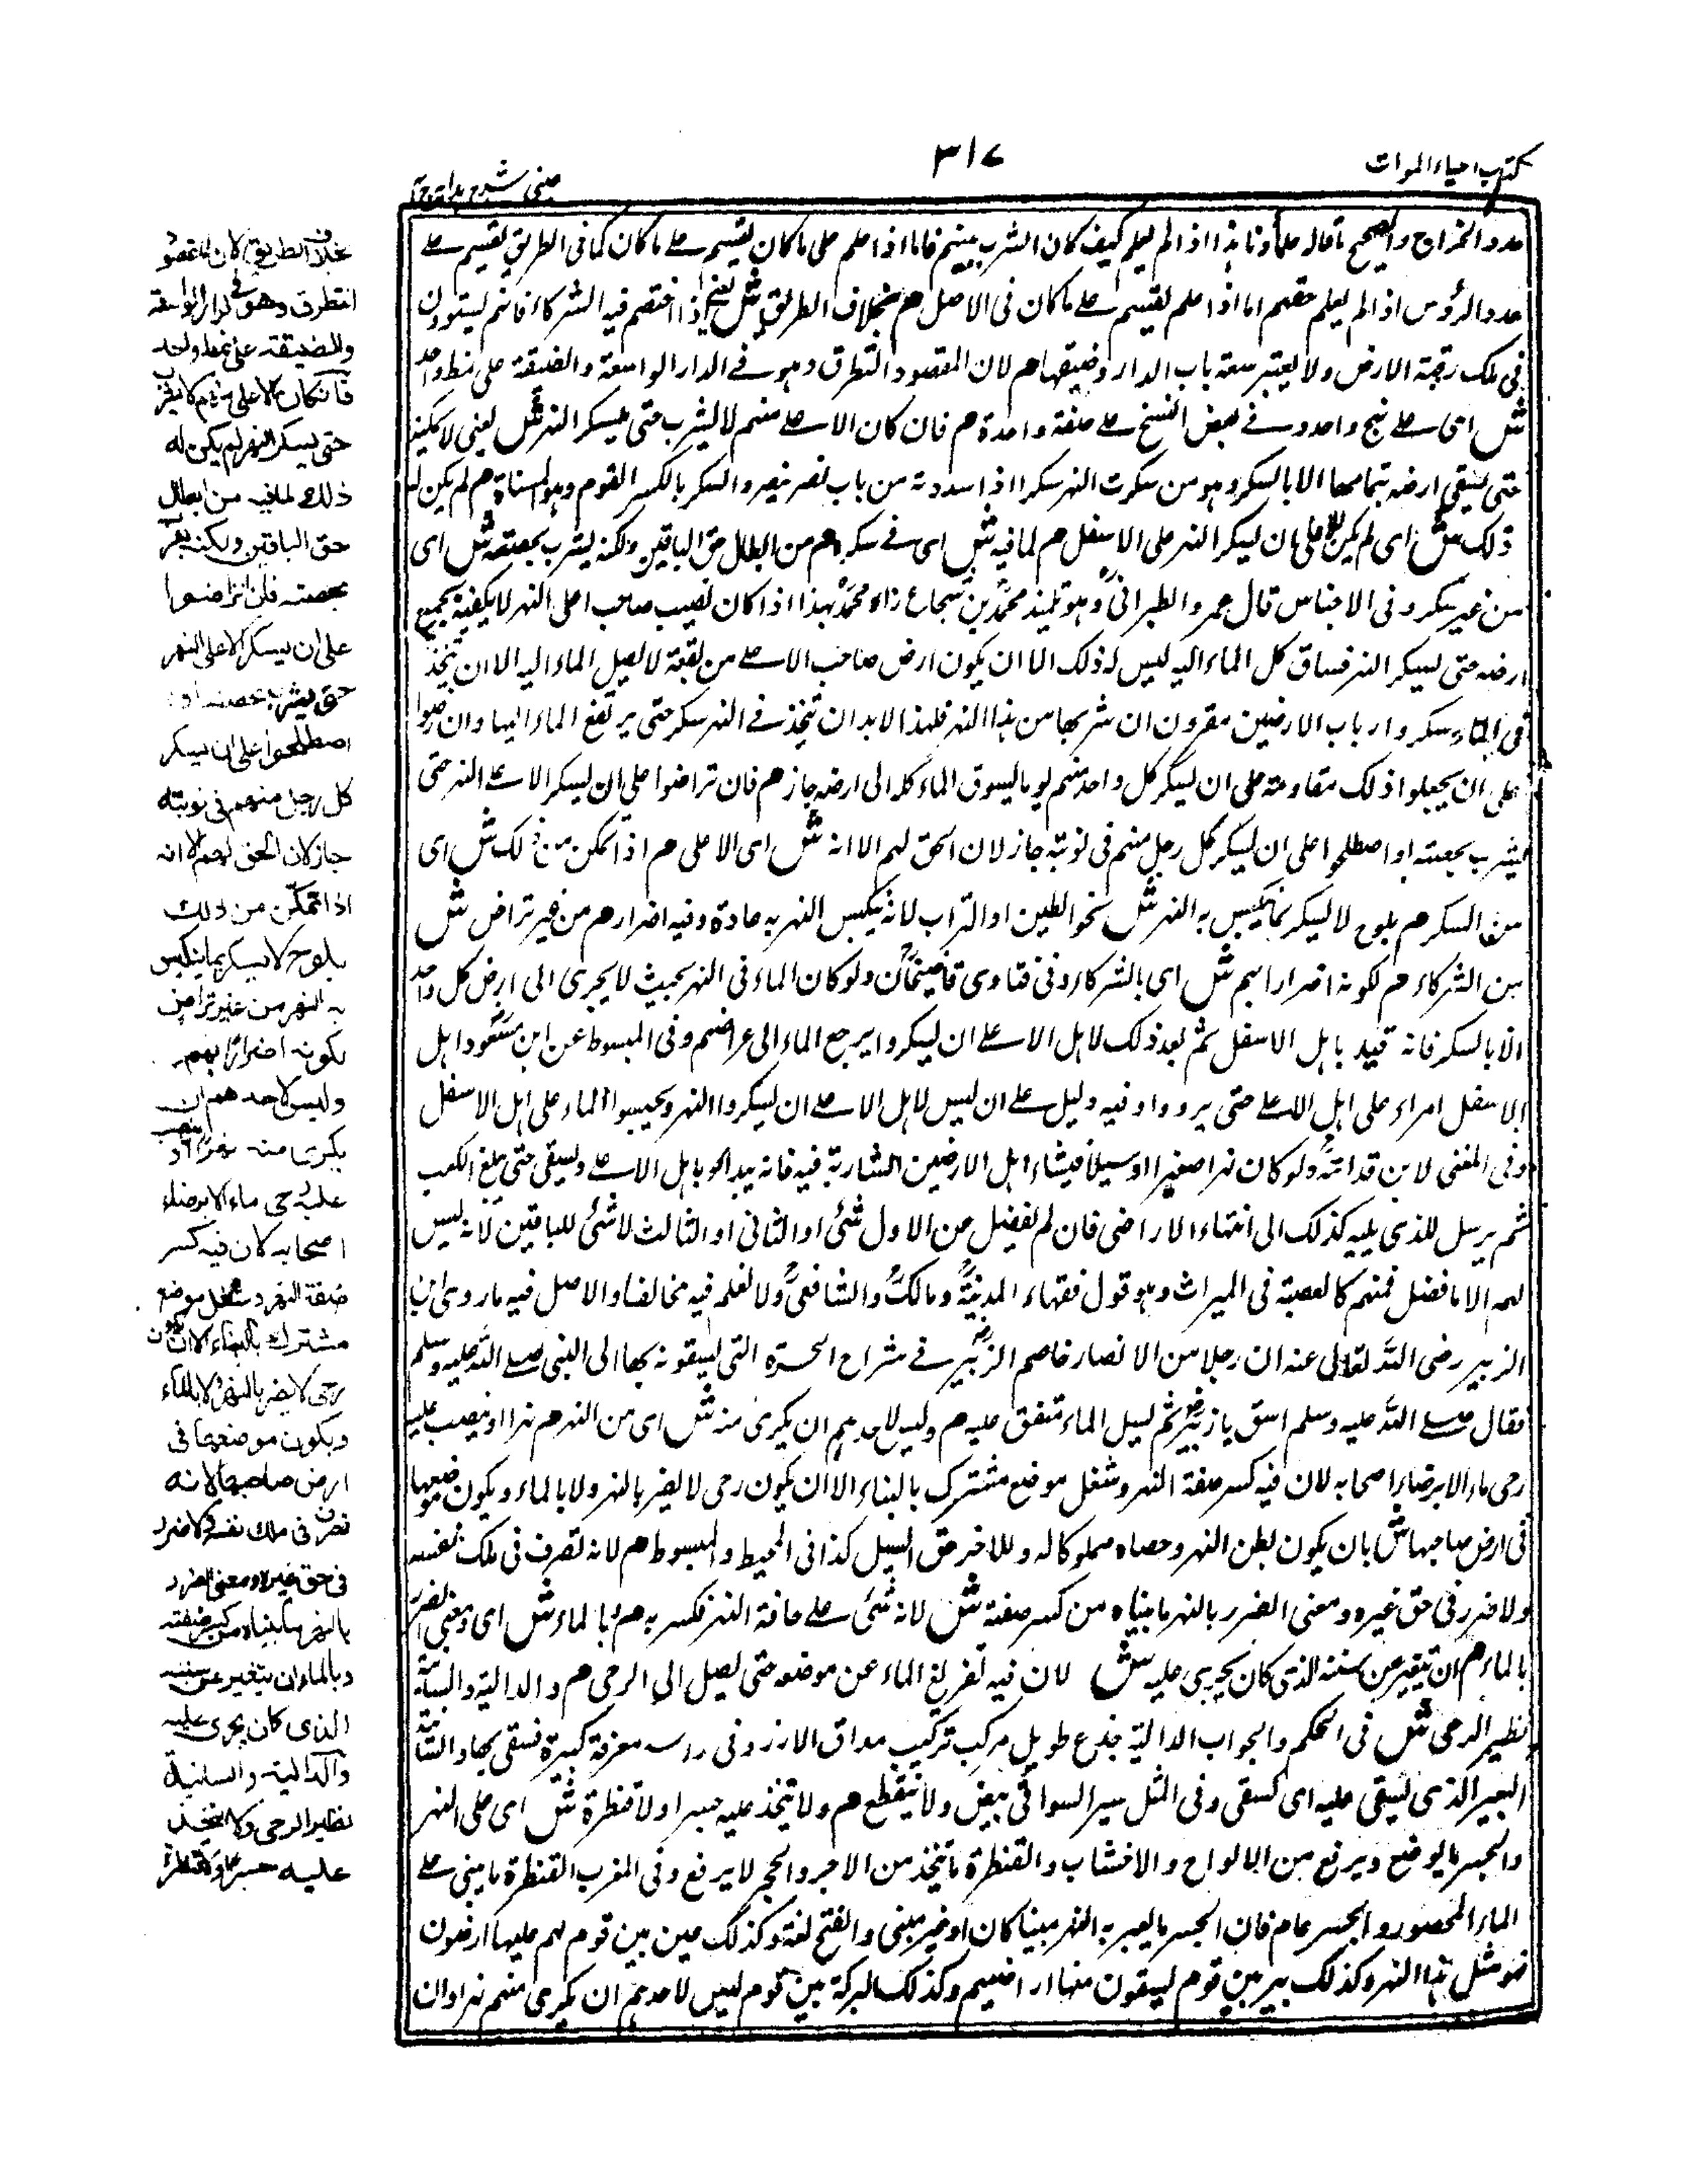 كتاب احياء الموات
٣١٧
عينى شرح هداية ج ٤
عدد الخراج والصحيح ما قاله علماؤنا هذا اذا لم يعلم كيف كان الشرب بينهم فاما اذا علم على ما كان يقسم على ما كان كما فى الطريق يقسم على
عدد الرؤس اذا لم يعلم حقهم اما اذا علم يقسم على ما كان فى الاصل هم بخلاف الطريق ش يعنى اذا اختصم فيه الشركاء فانهم يستوون
فى ملك رقبة الارض ولا يعتبر سعة باب الدار وضيقها هم لان المقصود التطرق وهو فى الدار الواسعة والضيقة على نمط واحد
ش اى على نهج واحد وفى بعض النسخ على صفة واحدة هم فان كان الاعلى منهم لا يشرب حتى يسكر النهر ش يعنى لا يمكنه
حتى يسقى ارضه بتمامها الا بالسكر وهو من سكرت النهر سكرا اذا سددته من باب نصر ينصر والسكر بالكسر القوم وهو المسناة هم لم يكن له
ذلك ش اى لم يكن للاعلى ان يسكر النهر على الاسفل هم لما فيه ش اى فى سكره هم من ابطال حق الباقين ولكنه يشرب بحصته ش اى
من غير سكر وفى الاجناس قال عمرو الطبرانى وهو تلميذ محمد بن شجاع زاه محمد بهذا اذا كان نصيب صاحب اعلى النهر لا يكفيه بجميع
ارضه حتى يسكر النهر فساق كل الماء اليه ليس له ذلك الا ان يكون ارض صاحب الاعلى من بقعة لا يصل الماء اليه الا ان يتخذ
فى الماء سكر وارباب الارضين مقرون ان شربها من هذا النهر فلهذا لابد ان تتخذ فى النهر سكر حتى يرتفع الماء اليها وان رضوا
على ان يجعلوا ذلك مقاومة على ان يسكر كل واحد منهم يوما ليسوق الماء كله الى ارضه جاز هم فان تراضوا على ان يسكر الاعلى النهر حتى
يشرب بحصته او اصطلحوا على ان يسكر كل رجل منهم فى نوبته جاز لان الحق لهم الا انه ش اى الاعلى هم اذا تمكن من ذلك ش اى
من السكر هم بلوح لا يسكر بما ينكبس به النهر ش نحو الطين او التراب لانه ينكبس النهر به عادة وفيه اضرار هم من غير تراض ش
بين الشركاء هم لكونه اضرارا بهم ش اى بالشركاء وفى فتاوى قاضيخان ولو كان الماء فى النهر بحيث لا يجرى الى ارض كل واحد
الا بالسكر فانه قيد باهل الاسفل ثم بعد ذلك لاهل الاعلى ان يسكروا يرجع الماء الى عراضهم وفى المبسوط عن ابن مسعود اهل
الاسفل امراء على اهل الاعلى حتى يرووا وفيه دليل على ان ليس لاهل الاعلى ان يسكروا النهر ويحبسوا الماء على اهل الاسفل
وفى المغنى لابن قدامة ولو كان نهرا صغيرا اوسيلا فيشاء اهل الارضين الشاربة فيه فانه يبدا لو باهل الاعلى ويسقى حتى يبلغ الكعب
ثم يرسل للذى يليه كذلك الى انتهاء الاراضى فان لم يفضل من الاول شئى او الثانى او الثالث لا شئى للباقين لانه ليس
لهم الا ما فضل فمنهم كالعصبة فى الميراث وهو قول فقهاء المدينة ومالك والشافعى ولا نعلم فيه مخالفا والاصل فيه ما روى ابن
الزبير رضى الله تعالى عنه ان رجلا من الانصار خاصم الزبير فى شراج الحرة التى يسقونه بها الى النبى صلى الله عليه وسلم
فقال صلى الله عليه وسلم اسق يا زبير ثم ليسل الماء متفق عليه هم وليس لاحدهم ان يكرى منه ش اى من النهر هم نهرا او ينصب عليه
رحى ماء الا برضاء اصحابه لان فيه كسر ضفة النهر وشغل موضع مشترك بالبناء الا ان يكون رحى لا يضر بالنهر ولا بالماء ويكون موضعها
فى ارض صاحبها ش بان يكون بطن النهر وحصاه مملوكا له وللاخر حق السيل كذا فى المحيط والمبسوط هم لانه تصرف فى ملك نفسه
ولا ضرر فى حق غيره ومعنى الضرر بالنهر ما بيناه من كسر ضفته ش لانه شئى على حافة النهر فكسر به هم وبالماء ش اى ومعنى الضرر
بالماء هم ان يتغير عن سننه الذى كان يجرى عليه ش لان فيه تفريغ الماء عن موضعه حتى يصل الى الرحى هم والدالية والسانية
نظير الرحى ش فى الحكم والجواب الدالية جذع طويل مركب تركيب مداق الارز وفى راسه مغرفة كبيرة فسقى بها والسانية
البعير الذى يسقى عليه اى يستقى وفى المثل سير السوانى بيض ولا ينقطع هم ولا يتخذ عليه جسرا ولا قنطرة ش اى على النهر
والجسر ما يوضع ويرفع من الالواح والاخشاب والقنطرة ما يتخذ من الاجر والحجر لا يرفع وفى المغرب القنطرة ما يبنى على
الماء المحصور والجسر عام فان الجسر ما يعبر به النهر مبنيا كان او غير مبنى والفتح لغة وكذلك عين بين قوم لهم عليها ارضون
فهو مثل هذا النهر وكذلك بير بين قوم يسقون منها اراضيهم وكذلك البركة بين قوم ليس لاحدهم ان يكرى منهم نهرا وان
بخلاف الطريق لان المقصود
التطرق وهو فى الدار الواسعة
والضيقة على نمط واحد
فان كان الاعلى منهم لا يشرب
حتى يسكر النهر لم يكن له
ذلك لما فيه من ابطال
حق الباقين ولكنه يشرب
بحصته فان تراضوا
على ان يسكر الاعلى النهر
حتى يشرب بحصته او
اصطلحوا على ان يسكر
كل رجل منهم فى نوبته
جاز لان الحق لهم الا انه
اذا تمكن من ذلك
بلوح لا يسكر بما ينكبس
به النهر من غير تراض
لكونه اضرارا بهم
وليس لاحدهم ان
يكرى منه نهرا او ينصب
عليه رحى ماء الا برضاء
اصحابه لان فيه كسر
ضفة النهر وشغل موضع
مشترك بالبناء الا ان يكون
رحى لا يضر بالنهر ولا بالماء
ويكون موضعها فى
ارض صاحبها لانه
تصرف فى ملك نفسه ولا ضرر
فى حق غيره ومعنى الضرر
بالنهر ما بيناه من كسر ضفته
وبالماء ان يتغير عن سننه
الذى كان يجرى عليه
والدالية والسانية
نظير الرحى ولا يتخذ
عليه جسرا ولا قنطرة